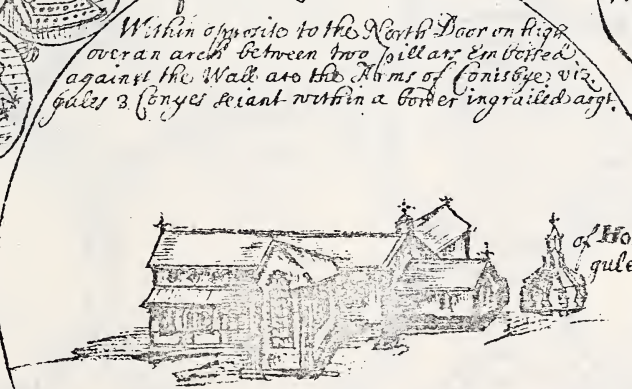 Within opposite to the North Door on high
over an arch between two pillars Embossed
against the Wall are the Arms of Conisbye viz.
gules 3 Conyes seiant within a border ingrailed argt.
of Ho
gule